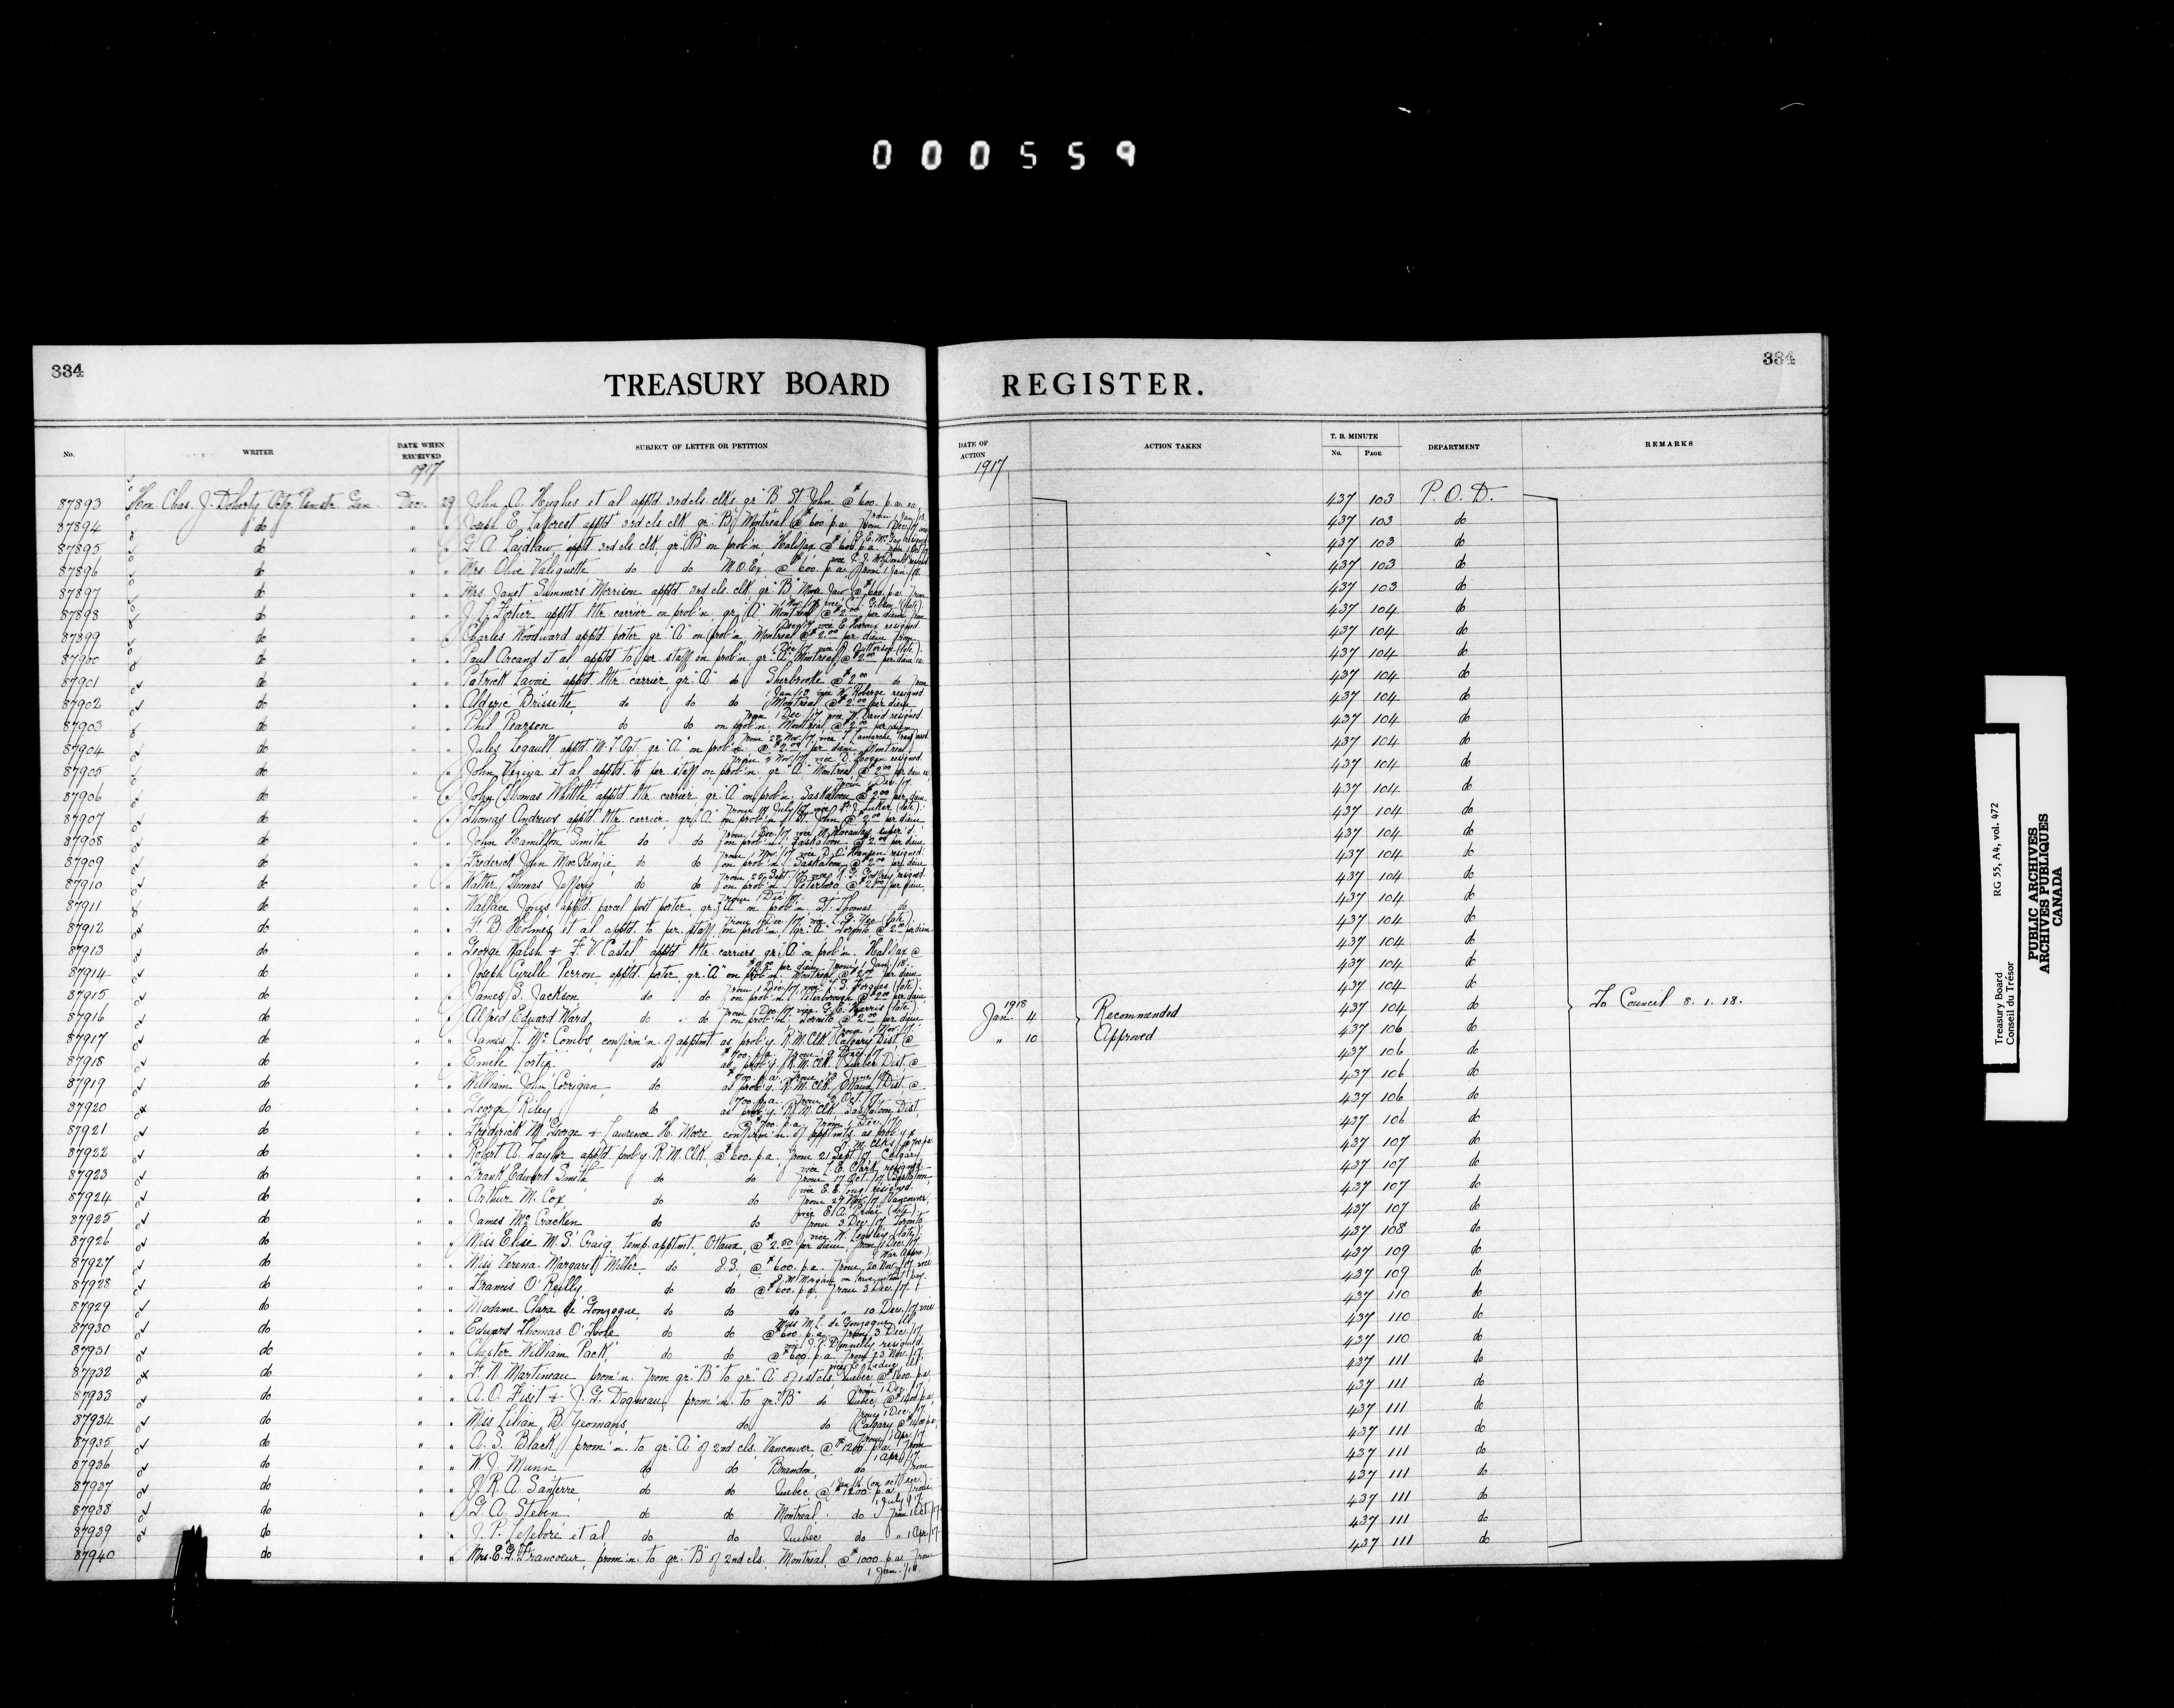 000559
334
TREASURY BOARD
REGISTER.
334
No.
WRITER
DATE WHEN RECEIVED
SUBJECT OF LETTER OR PETITION
DATE OF ACTION
ACTION TAKEN
T. B. MINUTE
No.
PAGE
DEPARTMENT
REMARKS
1917
1917
87893 Hon. Chas. J. Doherty Dec. 29 John A. Hughes et al apptd 3rd cls clks gr "B" St John @ $600. p.a. 437 103 P.O.D.
87894 do " " Joseph E. Laforest apptd 3rd cls clk gr. "B" Montreal @ $600 p.a. from 1 Dec/17 437 103 do
87895 do " " G. A. Laidlaw apptd 3rd cls clk, gr. "B" on prob'n, Halifax @ $600 p.a. 437 103 do
87896 do " " Mrs. Olive Valiquette do do M.O.Ex. @ $600. p.a. from 1 Jan/18. 437 103 do
87897 do " " Mrs Janet Summers Morrison apptd 3rd cls. clk. gr "B" Moose Jaw @ $600. p.a. from 437 103 do
87898 do " " J. L. Fortier apptd ltr carrier on prob'n, gr. "A" Montreal @ $2.00 per diem from 437 104 do
87899 do " " Charles Woodward apptd. porter gr. "A" on prob'n Montreal @ $2.00 per diem from 437 104 do
87900 do " " Paul Arcand et al apptd to per. staff on prob'n gr. "A" Montreal @ $2.00 per diem 437 104 do
87901 do " " Patrick Lavoie apptd. ltr carrier, gr. "A" do Sherbrooke @ $2.00 do from 437 104 do
1 Jan/18 vice W. Roberge resigned
87902 do " " Alderic Brissette, do do do Montreal @ $2.00 per diem 437 104 do
from 1 Dec/17 vice W. David resigned.
87903 do " " Phil Pearson do do on prob'n. Montreal, @ $2.00 per diem 437 104 do
87904 do " " Jules Legault apptd M.T. Agt. gr. "A" on prob'n. @ $2.00 per diem, Montreal 437 104 do
87905 do " " John Vezina et al apptd. to per. staff on prob'n gr. "A" Montreal @ $2.00 per diem 437 104 do
87906 do " " John Thomas Whittle apptd ltr. carrier, gr. "A" on prob'n. Saskatoon @ $2.00 per diem 437 104 do
87907 do " " Thomas Andrews apptd ltr. carrier, gr. "A" on prob'n St. John @ $2.00 per diem 437 104 do
87908 do " " John Hamilton Smith do do on prob'n, Saskatoon @ $2.00 per diem 437 104 do
87909 do " " Frederick John MacKenzie, do do on prob'n Saskatoon @ $2.00 per diem 437 104 do
87910 do " " Walter Thomas Jeffery do do on prob'n Peterboro, @ $2.00 per diem, 437 104 do
from 1 Dec/17.
87911 do " " Wallace Jones apptd. parcel post porter, gr. "A" on prob'n. St. Thomas do 437 104 do
87912 do " " F. B. Holmes et al apptd. to per. staff, on prob'n, gr. "A" Toronto, @ $2.00 per diem 437 104 do
87913 do " " George Walsh & F. V. Castel apptd ltr. carriers, gr. "A" on prob'n. Halifax @ 437 104 do
$2.00 per diem from 1 Jan./18.
87914 do " " Joseph Cyrille Perron, apptd. porter, gr. "A" on prob'n. Montreal @ $2.00 per diem 437 104 do
87915 do " " James S. Jackson, do do on prob'n Peterborough @ $2.00 per diem, 437 104 do
87916 do " " Alfred Edward Ward, do do on prob'n. Toronto @ $2.00 per diem 437 104 do
1918
Jan. 4 Recommended
" 10 Approved
To Council 8. 1. 18.
87917 do " " James J. McCombs, confirm'n. of apptmt. as prob'y. R.M. Clk. Calgary Dist. @ 437 106 do
87918 do " " Emile Fortin do as prob'y R.M. Clk. Quebec Dist. @ 437 106 do
87919 do " " William John Corrigan, do as prob'y. R.M. Clk. Ottawa Dist. @ 437 106 do
700. p.a. from 2 Oct./17.
87920 do " " George Riley do as prob'y. R.M. Clk. Saskatoon Dist. 437 106 do
@ $700. p.a. from 1 Dec./17.
87921 do " " Frederick M. George & Laurence H. Moore, confirm'n. of apptmts. as prob'y 437 106 do
87922 do " " Robert A. Taylor apptd prob'y. R.M. Clk. @ $600. p.a. from 21 Sept/17 Calgary 437 107 do
87923 do " " Frank Edward Smith do do from 17 Oct./17 Saskatoon 437 107 do
87924 do " " Arthur M. Cox do do from 27 Nov./17 Vancouver, 437 107 do
87925 do " " James McCracken do do from 3 Dec./17, Toronto 437 107 do
87926 do " " Miss Elsie M. S. Craig, temp. apptmt., Ottawa, @ $2.50 per diem, from 11 Dec./17. 437 108 do
87927 do " " Miss Verena Margaret Miller, do I.S. @ $600. p.a. from 20 Nov./17 vice 437 109 do
87928 do " " Francis O'Reilly do do @ $600. p.a. from 3 Dec./17. 437 109 do
87929 do " " Madame Clara de Gonzague, do do do " 10 Dec./17, vice 437 110 do
Miss M. L. de Gonzague
87930 do " " Edward Thomas O'Toole do do @ $600. p.a. from 3 Dec./17, 437 110 do
vice J. P. Donnelly resigned.
87931 do " " Chester William Pack, do do @ $600. p.a. from 23 Nov./17. 437 110 do
87932 do " " F. N. Martineau prom'n. from gr. "B" to gr. "A" of 1st cls. Quebec @ $1600. p.a. 437 111 do
from 1 Dec./17
87933 do " " A. O. Fiset & J. G. Dagneau, prom'n. to gr. "B" do Quebec, @ $1400 p.a. 437 111 do
from 1 Dec./17.
87934 do " " Miss Lilian B. Yeomans, do do Calgary @ 437 111 do
from 1 Apr./17.
87935 do " " A. S. Black, prom'n. to gr. "A" of 2nd cls., Vancouver, @ $1200 p.a. from 437 111 do
1 Apr./17.
87936 do " " W. J. Munn do do Brandon, do from 437 111 do
87937 do " " J. R. A. Santerre, do do Quebec @ $1200. p.a. from 437 111 do
1 July/17.
87938 do " " G. A. Steben do do Montreal do from 1 Oct/17. 437 111 do
87939 do " " J. P. Lefebvre et al do do Quebec do " 1 Apr/17. 437 111 do
87940 do " " Mrs. E. G. Francoeur, prom'n. to gr. "B" of 2nd cls. Montreal, @ $1000. p.a. from 437 111 do
1 Jan./18.
Treasury Board
Conseil du Trésor
RG 55, A4, vol. 472
PUBLIC ARCHIVES
ARCHIVES PUBLIQUES
CANADA